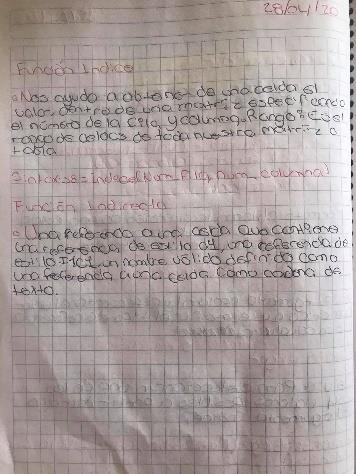 28/04/20
Función Indice
Nos ayuda a obtener de una celda el
valor dentro de una matriz especificando
el número de la fila y columna, Rango: Es el
rango de celdas de toda nuestra matriz o
tabla.
Sintaxis = Indice( Num_Fila, num_columna)
Función Indirecto
Una referencia a una celda que contiene
una referencia de estilo A1, una referencia de
estilo F1C1, un nombre válido definido como
una referencia a una celda como cadena de
texto.